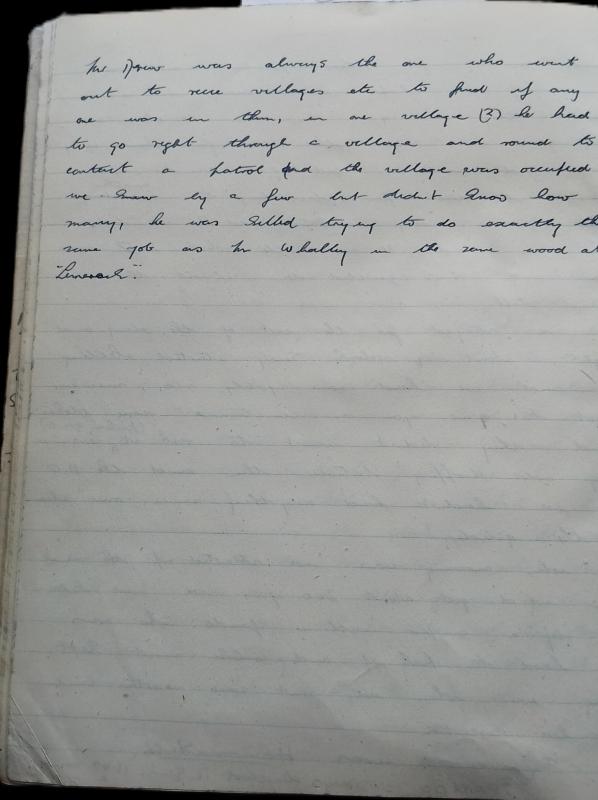 Mr Drew was always the one who went
out to recce villages etc to find if any
one was in them, in one village (3) he had
to go right through a village and round to
contact a patrol and the village was occupied
we knew by a few but didn't know how
many, he was killed trying to do exactly th
same job as Mr Whalley in the same wood at